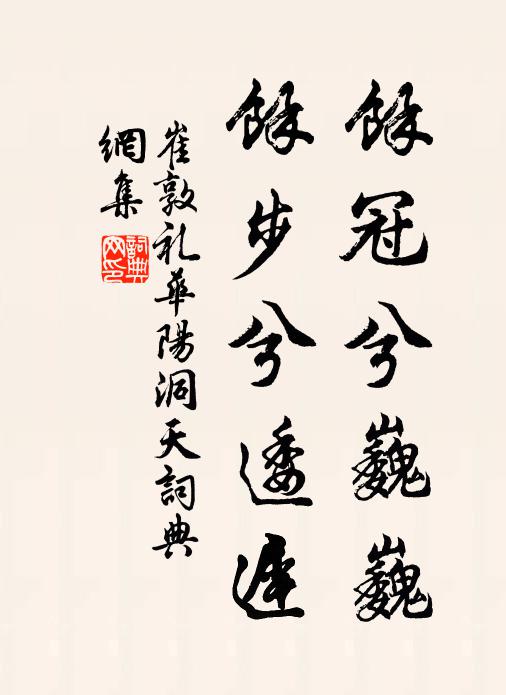 餘冠兮巍巍
餘步兮逶遲
崔敦礼華陽洞天詞典
網集
詞典網印